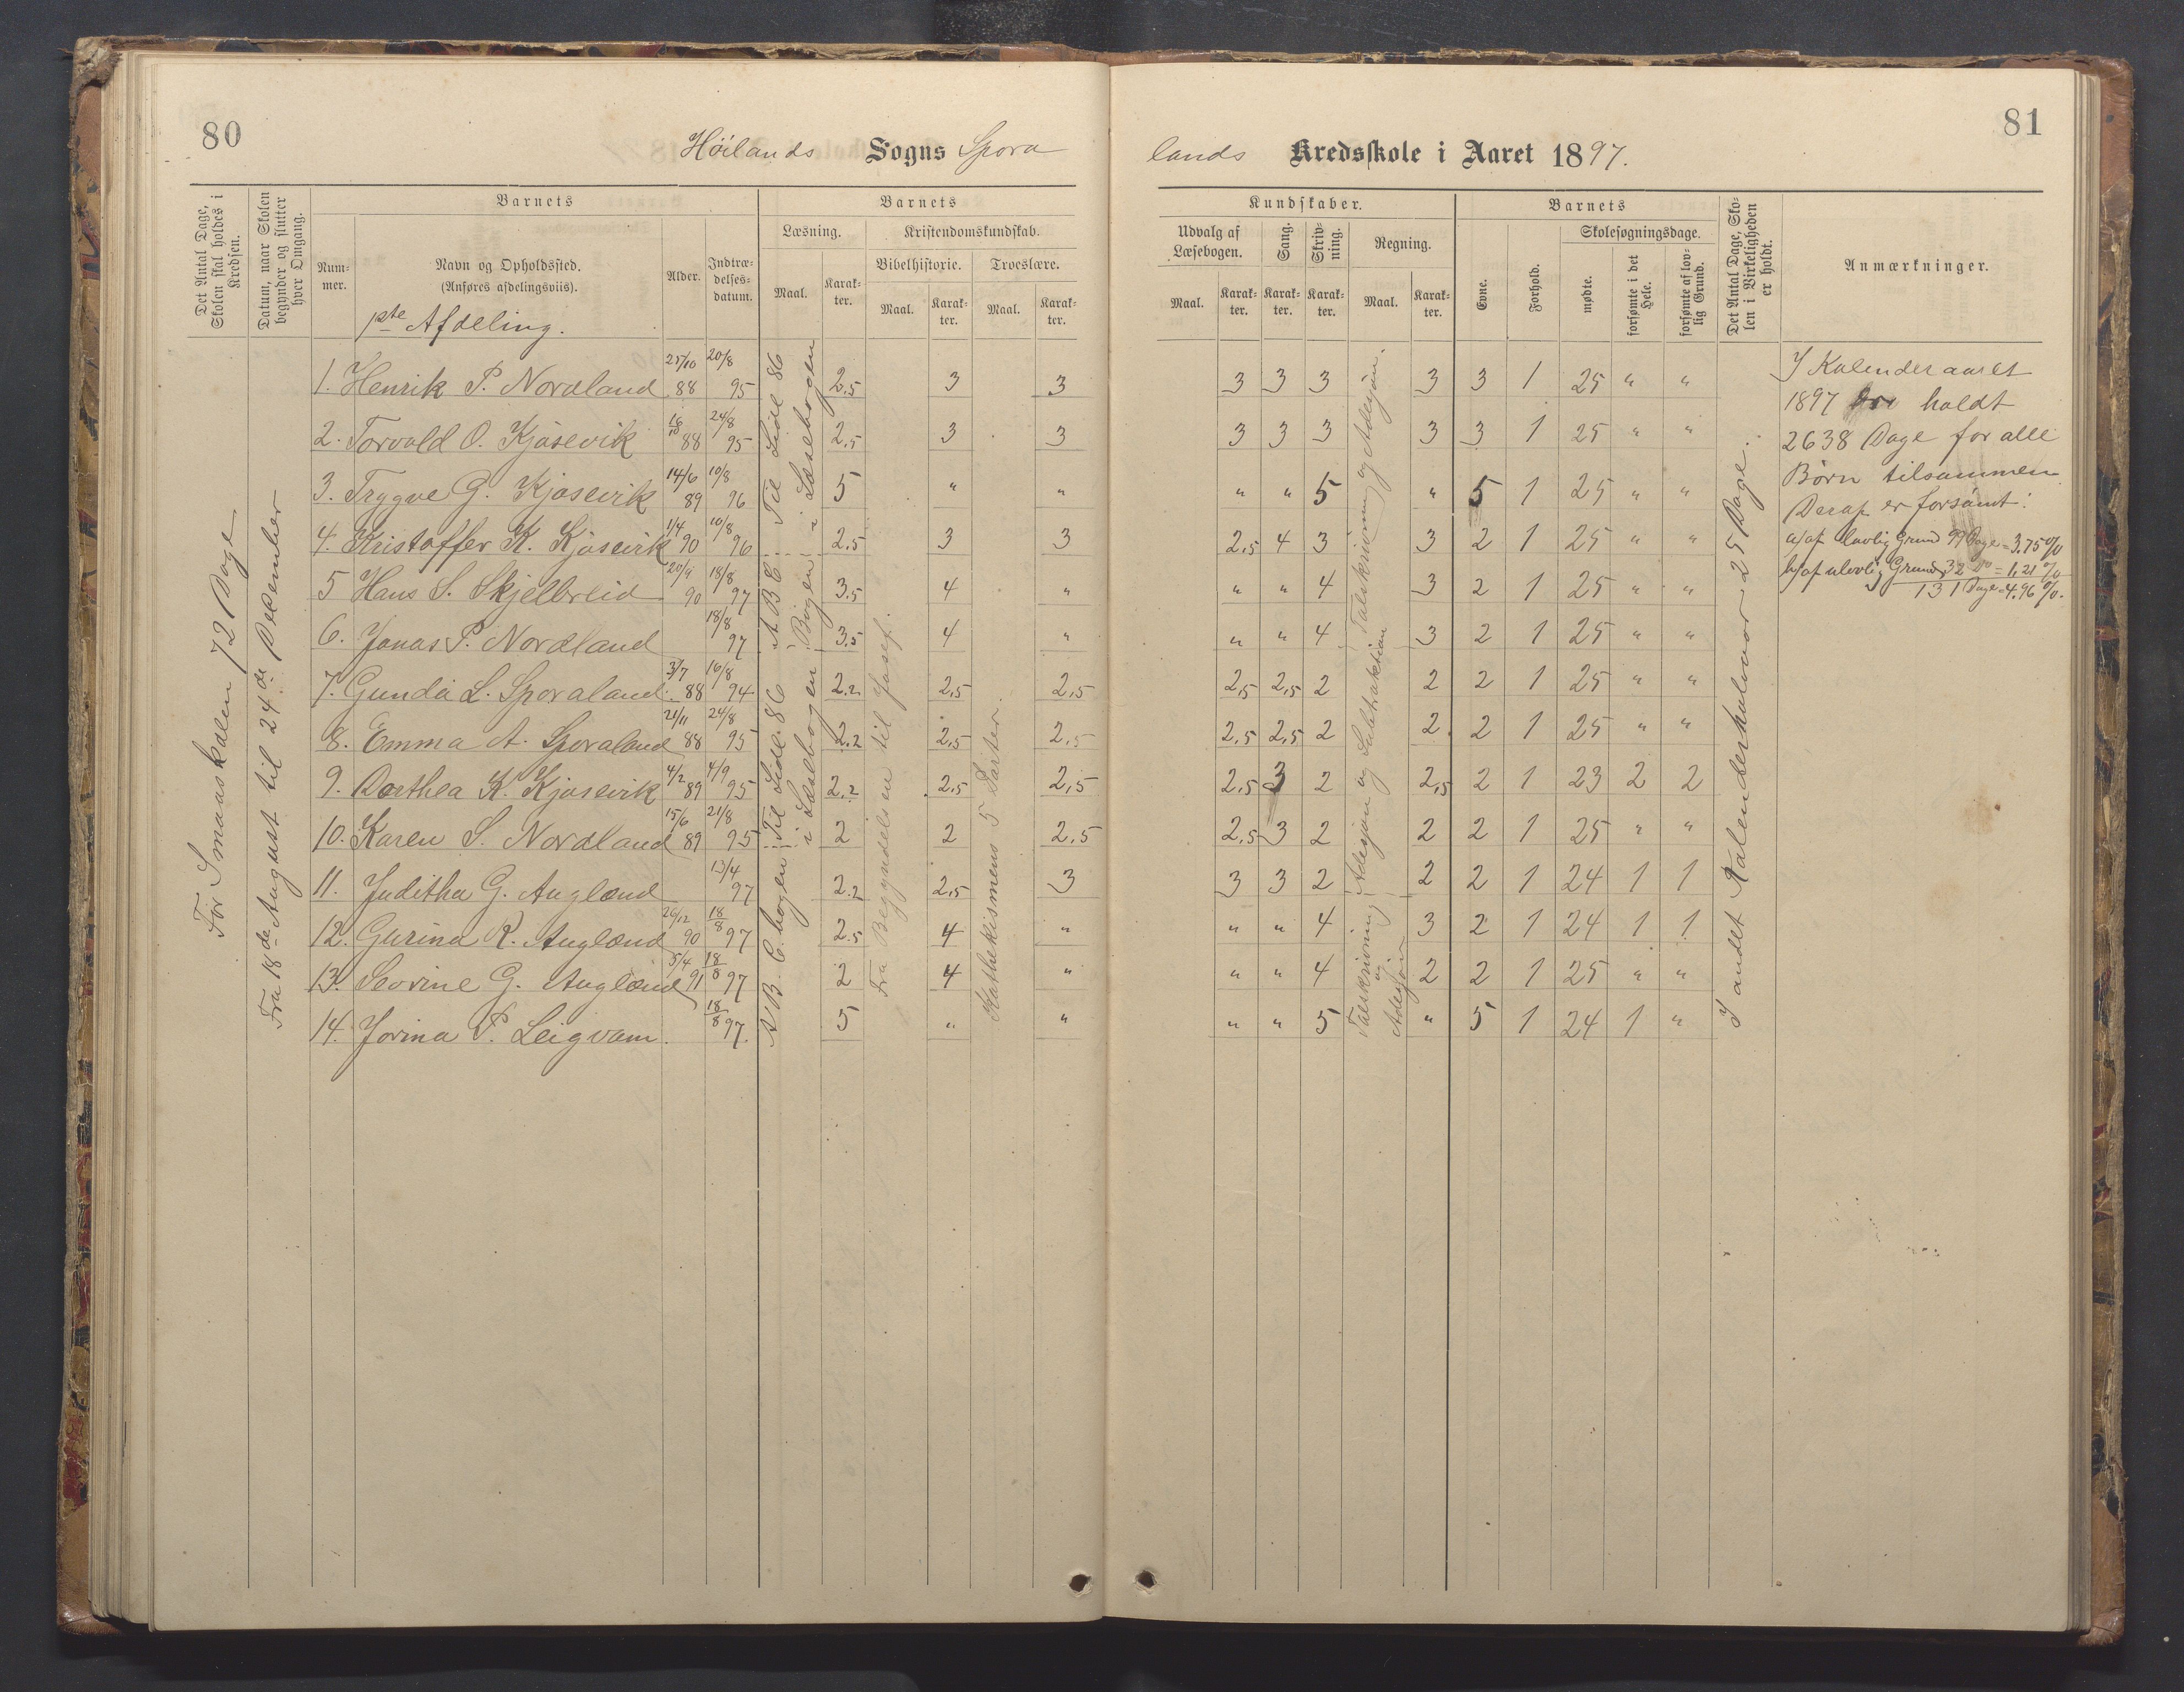 80
Höilands Sogns Spora
lands Kredsskole i Aaret 1897.
81
Det Antal Dage, Skolen skal holdes i Kredsen.
Datum, naar Skolen begynder og slutter hver Omgang.
Barnets
Num-mer.
Navn og Opholdssted.
(Anføres afdelingsviis).
Alder.
Indtræ-delses-datum.
Barnets
Læsning.
Maal.
Karak-ter.
Kristendomskundskab.
Bibelhistorie.
Maal.
Karak-ter.
Troeslære.
Maal.
Karak-ter.
Kundskaber.
Udvalg af Læsebogen.
Maal.
Karak-ter.
Sang.
Karak-ter.
Skriv-ning.
Karak-ter.
Regning.
Maal.
Karak-ter.
Barnets
Evne.
Forhold.
Skolesøgningsdage.
mødte.
forsømte i det Hele.
forsømte af lov-lig Grund.
Det Antal Dage, Sko-len i Virkeligheden er holdt.
Anmærkninger.
1ste Afdeling.
For Smaaskolen 72 Dage
Fra 18de August til 24de December
1. Henrik P. Nordland 25/10 88 20/8 95 2.5 3 3 3 3 3 3 3 1 25 " "
2. Torvald O. Kjosevik 18/10 88 24/8 95 2.5 3 3 3 3 3 3 3 1 25 " "
3. Trygve G. Kjosevik 14/6 89 10/8 96 5 " " " " 5 " 5 1 25 " "
4. Kristoffer K. Kjosevik 1/4 90 10/8 96 2.5 3 3 2.5 4 3 3 2 1 25 " "
5 Hans S. Skjelbreid 20/9 90 18/8 97 3.5 4 " " " 4 3 2 1 25 " "
6. Jonas P. Nordland 18/8 97 3.5 4 " " " 4 3 2 1 25 " "
7. Gunda L. Sporaland. 3/7 88 16/8 94 2.2 2.5 2.5 2.5 2.5 2 2 2 1 25 " "
8. Emma A. Sporaland 21/11 88 24/8 95 2.2 2.5 2.5 2.5 2.5 2 2 2 1 25 " "
9. Dorthea K. Kjosevik 4/2 89 4/9 95 2.2 2.5 2.5 2.5 3 2 2.5 2 1 23 2 2
10. Karen S. Nordland 15/6 89 21/8 95 2 2 2.5 2.5 3 2 2 2 1 25 " "
11. Juditha G. Augland 13/4 97 2.2 2.5 3 3 3 2 2 2 1 24 1 1
12. Gurina R. Augland 26/12 90 18/8 97 2.5 4 " " " 4 3 2 1 24 1 1
13. Sevrine G. Augland 5/4 91 18/8 97 2 4 " " " 4 2 2 1 25 " "
14. Jorina P. Leigvam. 18/8 97. 5 " " " " 5 " 5 1 24 1 "
Til Side 86 i Læsebogen
ABC Bogen
Til Side 86 i Læsebogen
A B. C. bogen
Fra Begyndelsen til Josef.
Kathekismens 5 Parter.
Talskrivning og Adesjon.
Adesjon og Subtraktion
Talskrivning og Adesjon
I andet Kalenderhalvaar 25 Dage.
I Kalenderaaret
1897 holdt
2638 Dage for alle
Börn tilsammen
Deraf er forsömt:
a/ af lovlig Grund 99 Dage = 3.75%
b/ af ulovlig Grund 32 do = 1,21%
131 Dage = 4.96%.